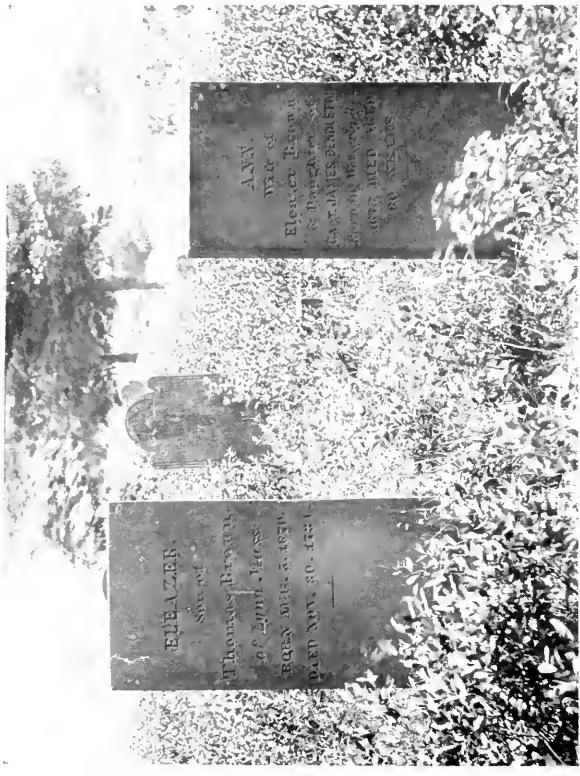 ELEAZER.
Son of
Thomas Brown,
of Lynn, Mass.
BORN AUG. 5, 1670,
DIED NOV. 30. 173
ANN
Wife of
Eleazer Brown,
& Daughter of
CAPT. JAMES PENDLETON
AND DIED AGED
80 YEARS.